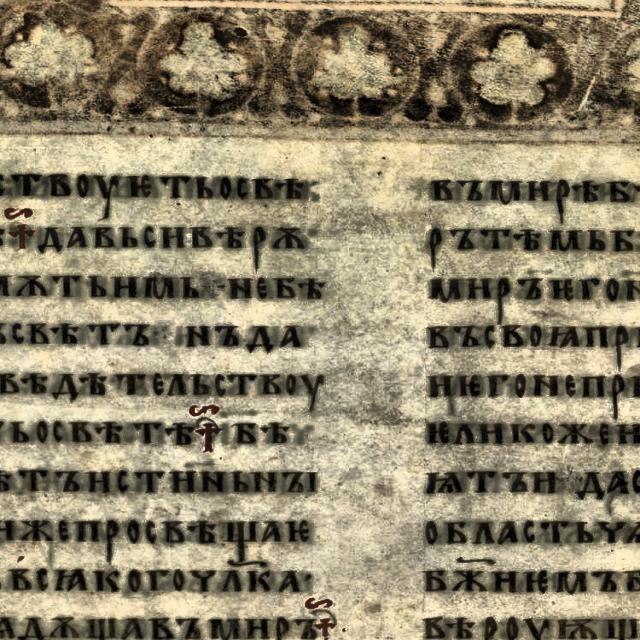 ствоуѥтьосвѣ
давьсивѣрѫ
мѫтьимь небѣ
свѣтъ нъда
вѣдѣтельствоу
ьосвѣтѣ бѣ
ѣтъистиньнꙑ
ижепросвѣщаѥ
вьсꙗкогочл҃ка
адѫщавъмиръ
въмирѣб
рътѣмьб
миръѥгон
въсвоꙗпр
ниѥгонепр
ѥликожен
ѩтъи дас
областьч
бж҃иѥмъб
вѣроуѭщ